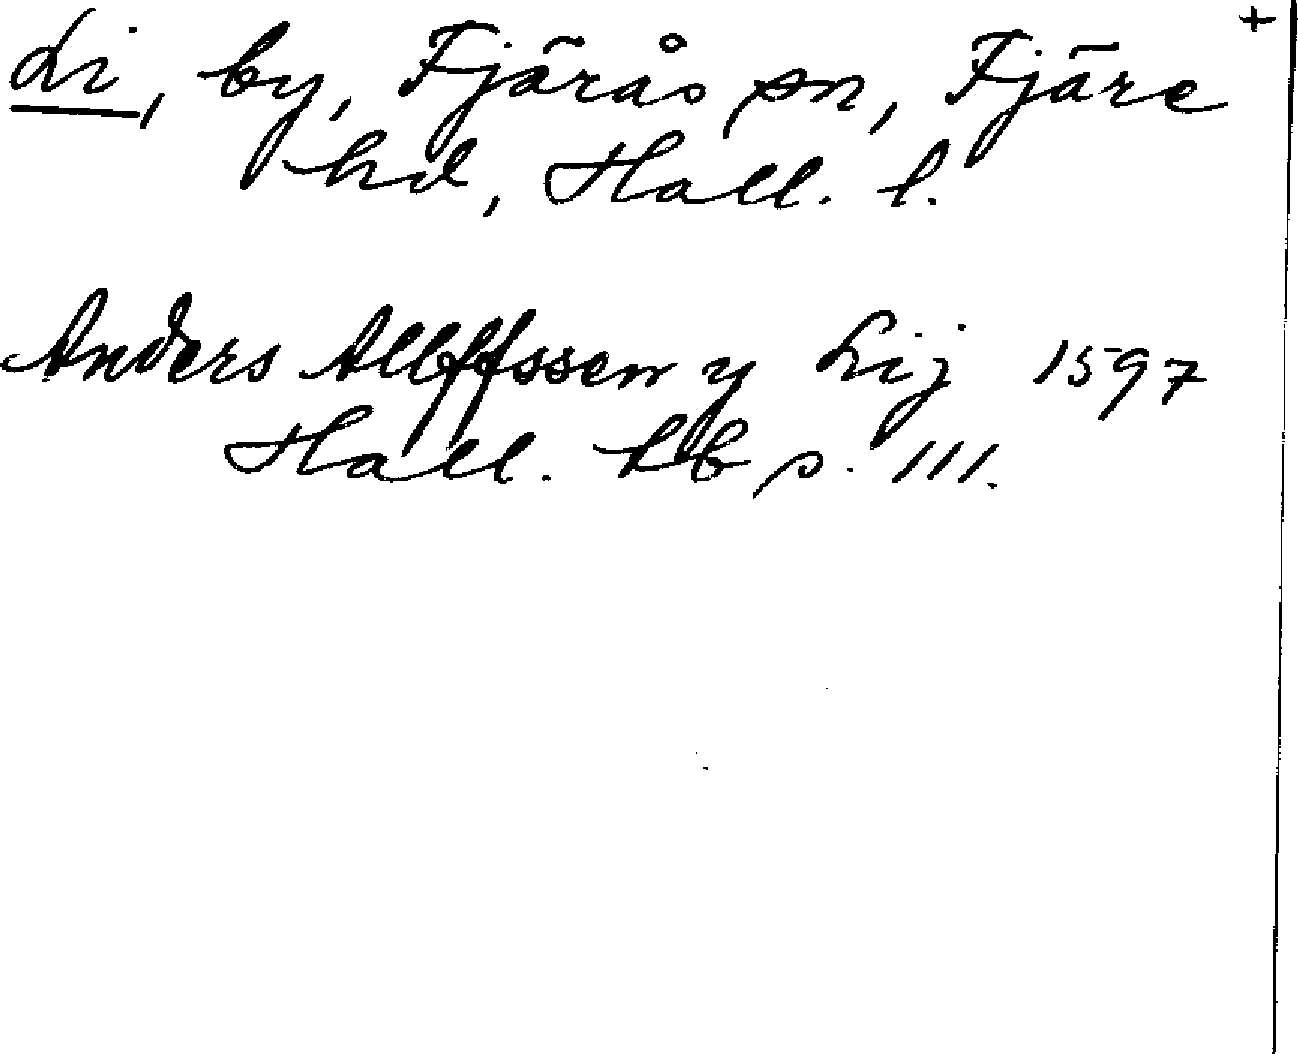 Li, by, Fjärås sn, Fjäre +
hd, Hall. l.
Anders Allffssen y Lij 1597
Hall. lb s. 111.